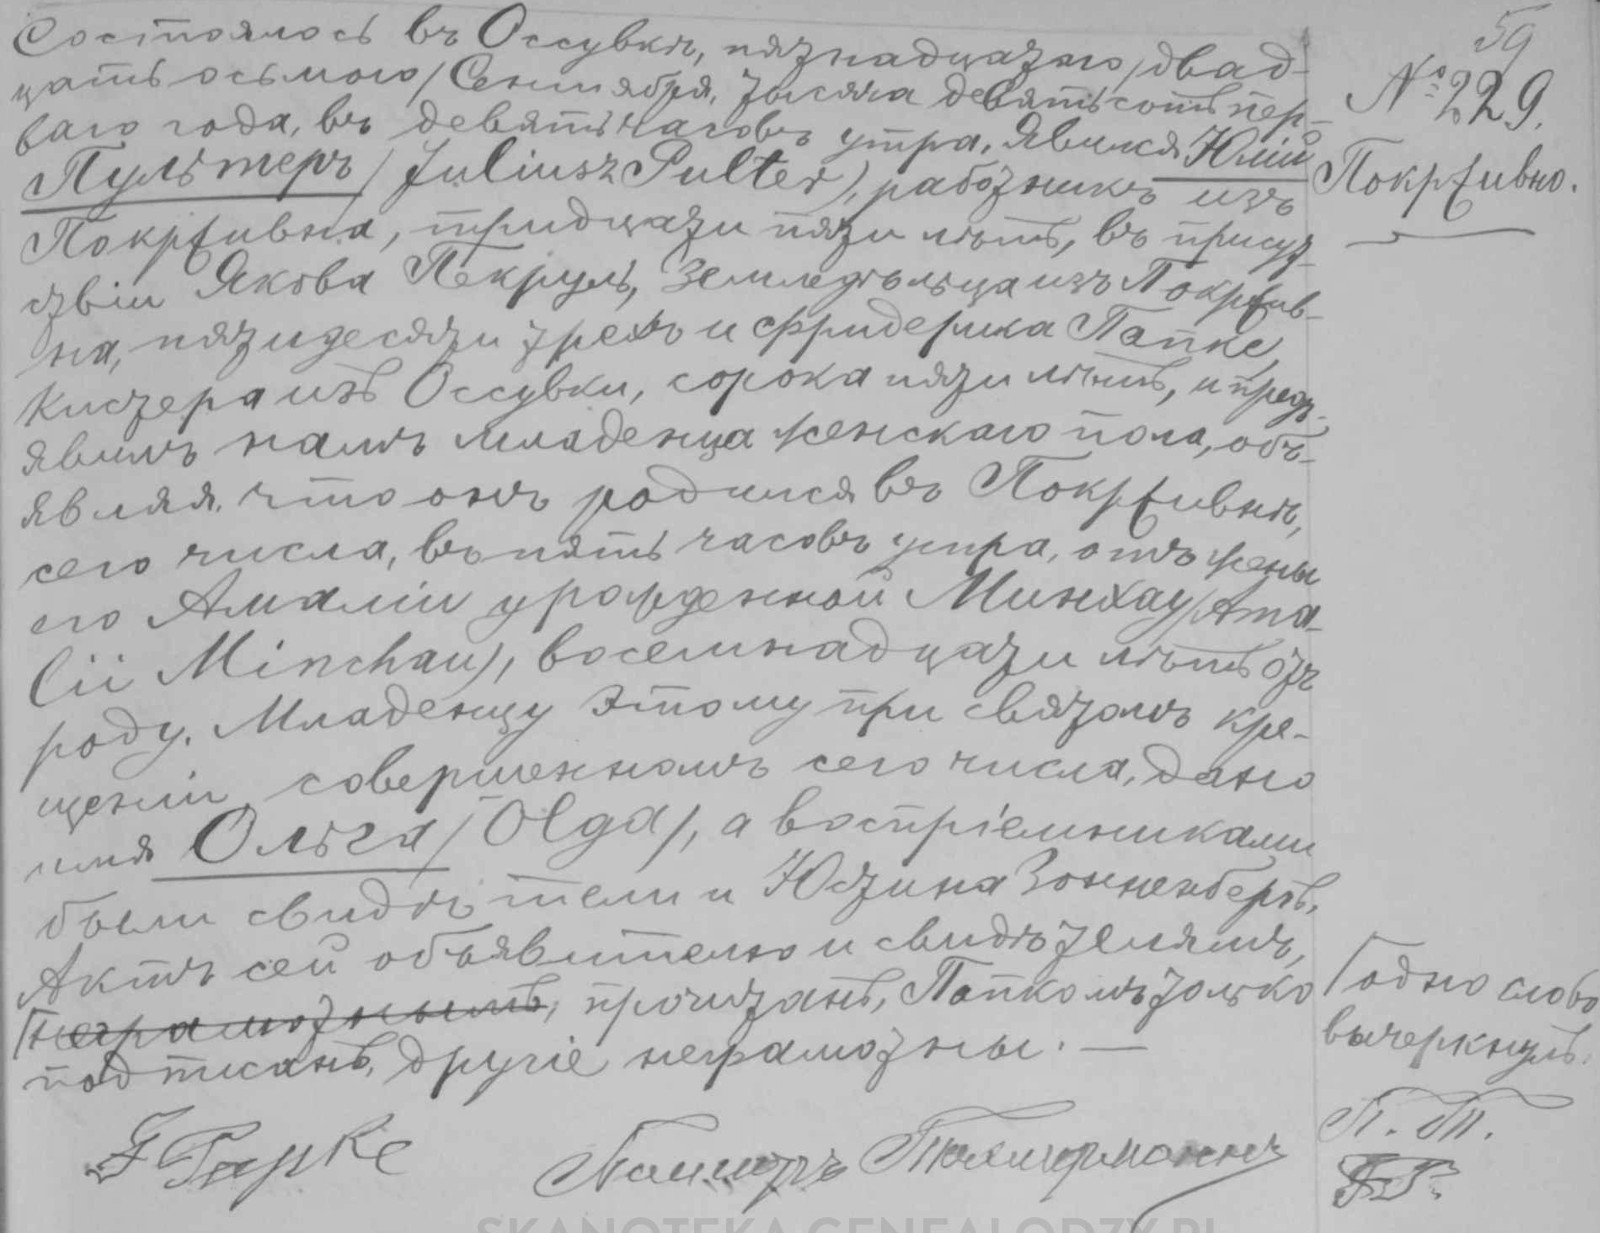 59
№ 229.
Покрживно.
Состоялось въ Оссувкѣ, пятнадцатаго /двад-
цать осьмого/ Сентября, тысяча девятьсотъ пер-
ваго года, въ девять часовъ утра. Явился Юлій
Пультеръ /Juliusz Pulter/, работникъ изъ
Покрживна, тридцати пяти лѣтъ, въ присут-
ствіи Якова Пекруль, земледѣльца изъ Покржив-
на, пятидесяти трехъ и Фридерика Папке,
Кистера изъ Оссувки, сорока пяти лѣтъ, и предъ-
явилъ намъ младенца женскаго пола, объ-
являя, что онъ родился въ Покрживнѣ,
сего числа, въ пять часовъ утра, отъ жены
его Амаліи урожденной Минхау /Ama-
lii Minchau/, восемнадцати лѣтъ отъ
роду. Младенцу этому при святомъ кре-
щеніи совершенномъ сего числа, дано
имя Ольга /Olga/, а воспріемниками
были свидѣтели и Юстина Зонненбергъ.
Актъ сей объявителю и свидѣтелямъ,
неграмотнымъ, прочитанъ, Папкомъ только
подписанъ, другіе неграмотны. —
одно слово
вычеркнулъ.
П. Т.
F Papke
Пасторъ